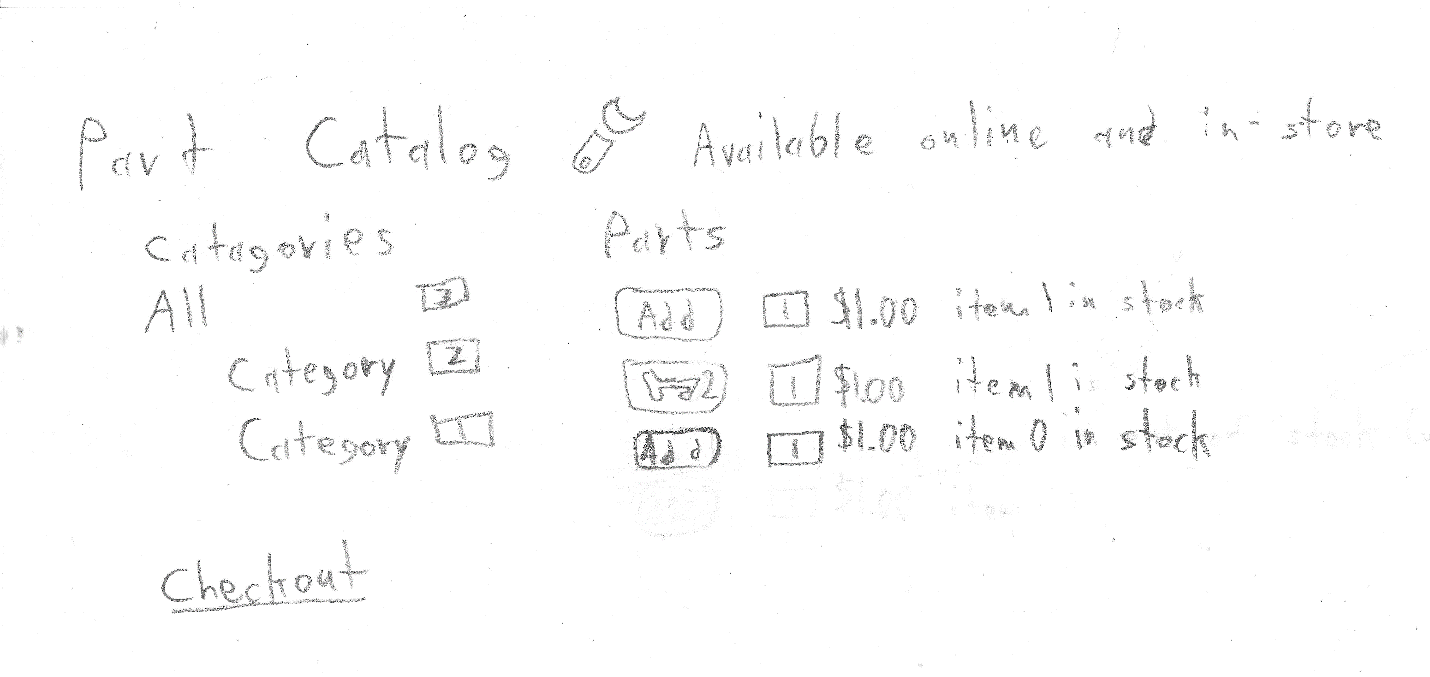 Part Catalog Available online and in-store
Catagories
All 3
Category 2
Category 1
Parts
Add 1 $1.00 item 1 in stock
2 1 $1.00 item 1 i stock
Add 1 $1.00 item 0 in stock
Checkout